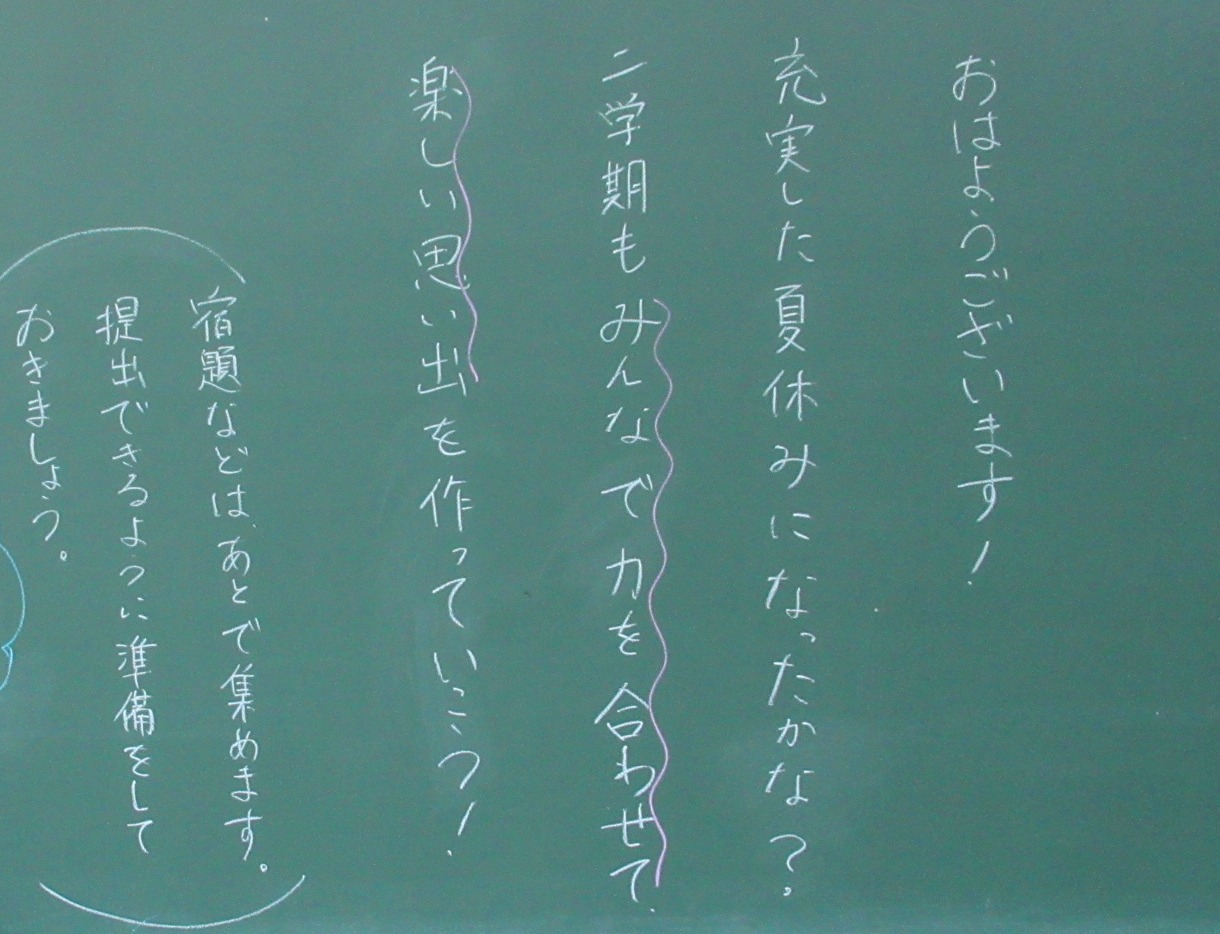 おはようございます!
充実した夏休みになったかな?
二学期もみんなで力を合わせて、
楽しい思い出を作っていこう!
宿題などは、あとで集めます。
提出できるように準備をして
おきましょう。